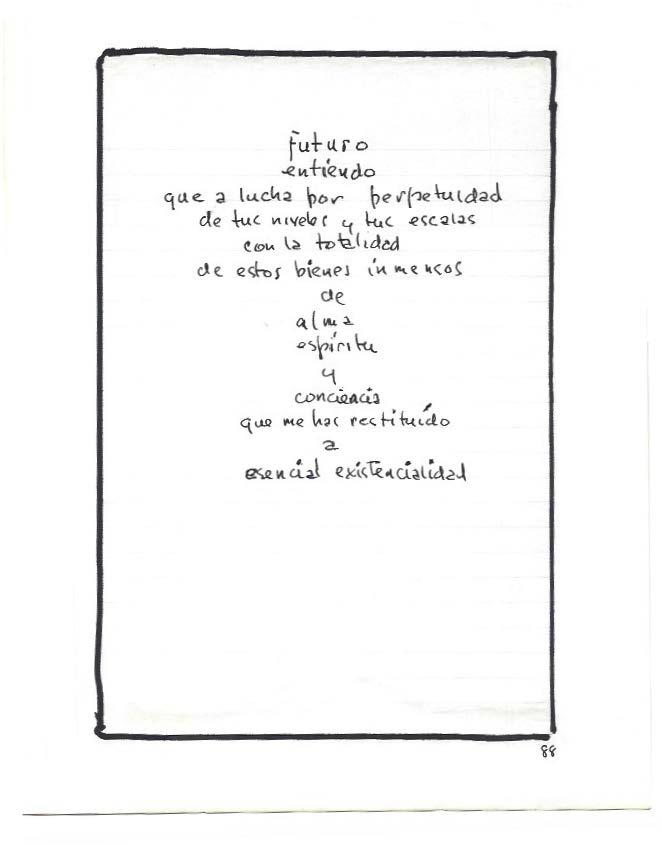 Futuro
entiendo
que a lucha por perpetuidad
de tus niveles y tus escalas
con la totalidad
de estos bienes inmensos
de
alma
espíritu
y
conciencia
que me has restituído
a
esencial existencialidad
88